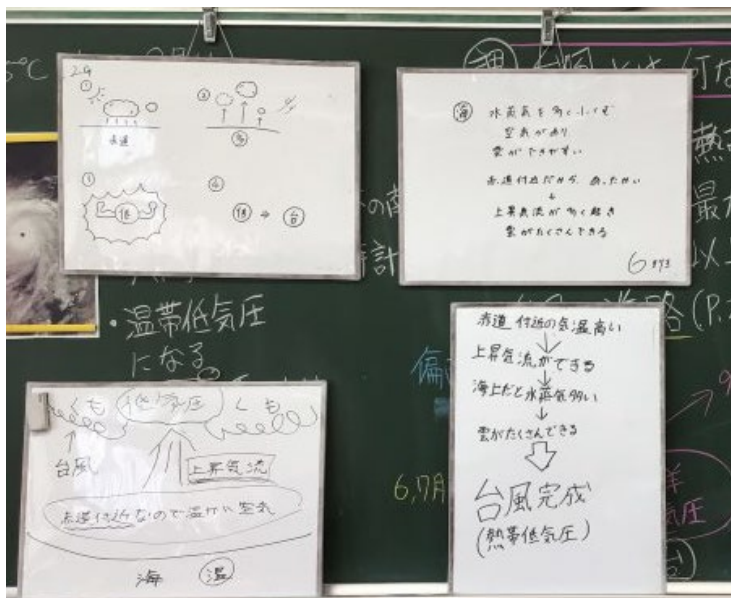 2G
①
赤道
②
多
③
低
④
低 → 台
海
水蒸気を多くふくむ
空気があり
雲ができやすい
赤道付近だから、あったかい
↓
上昇気流が多く起き
雲がたくさんできる
6
台風とは何な
熱
最
・温帯低気圧
になる
の南
計
(P.
6,7月
偏
くも
低気圧
くも
台風
上昇気流
赤道付近なので温かい空気
海
温
赤道付近の気温高い
↓
上昇気流ができる
↓
海上だと水蒸気多い
↓
雲がたくさんできる
台風完成
(熱帯低気圧)
気圧
台